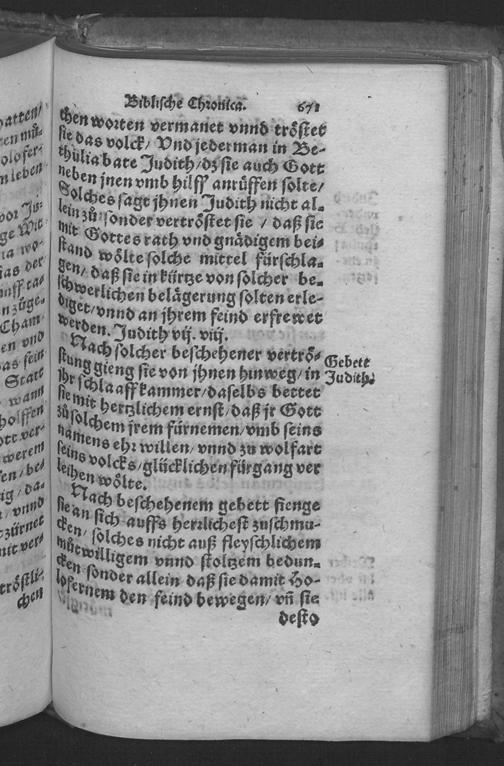 Biblische Chronica. 671
chen worten vermanet vnnd tröstet
sie das volck / Vnd jederman in Be-
thulia bate Judith / dz sie auch Gott
neben jnen vmb hilff anrüffen solte /
Solches sagt jhnen Judith nicht al-
lein zů / sonder vertröstet sie / daß sie
mit Gottes rath vnd gnädigem bei-
stand wölte solche mittel fürschla-
gen / daß sie in kürtze von solcher be-
schwerlichen belägerung solten erle-
diget / vnnd an jhrem feind erfrewet
werden. Judith vij. viij.
Nach solcher beschehener vertrö-
stung gieng sie von jhnen hinweg / in
jhr schlaaffkammer / daselbs bettet
sie mit hertzlichem ernst / daß jr Gott
zů solchem jrem fürnemen / vmb seins
namens ehr willen / vnnd zu wolfart
seins volcks / glücklichen fürgang ver
leihen wölte.
Nach beschehenem gebett fienge
sie an sich auffs herrlichest zuschmu-
cken / solches nicht auß fleyschlichem
můtwilligem vnnd stoltzem bedun-
cken sonder allein daß sie damit Ho-
lofernem den feind bewegen / vñ sie
desto
Gebett
Judith.
hatten /
olofer-
leben
vor Ju-
der
Cham
vnd
sein
Statt
wann
holffen
ott ver-
werem
be-
da-
vnnd
zürnet
ver-
tröstli-
chen